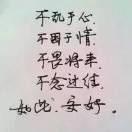 不乱于心.
不困于情.
不畏将来.
不念过往.
如此.安好.